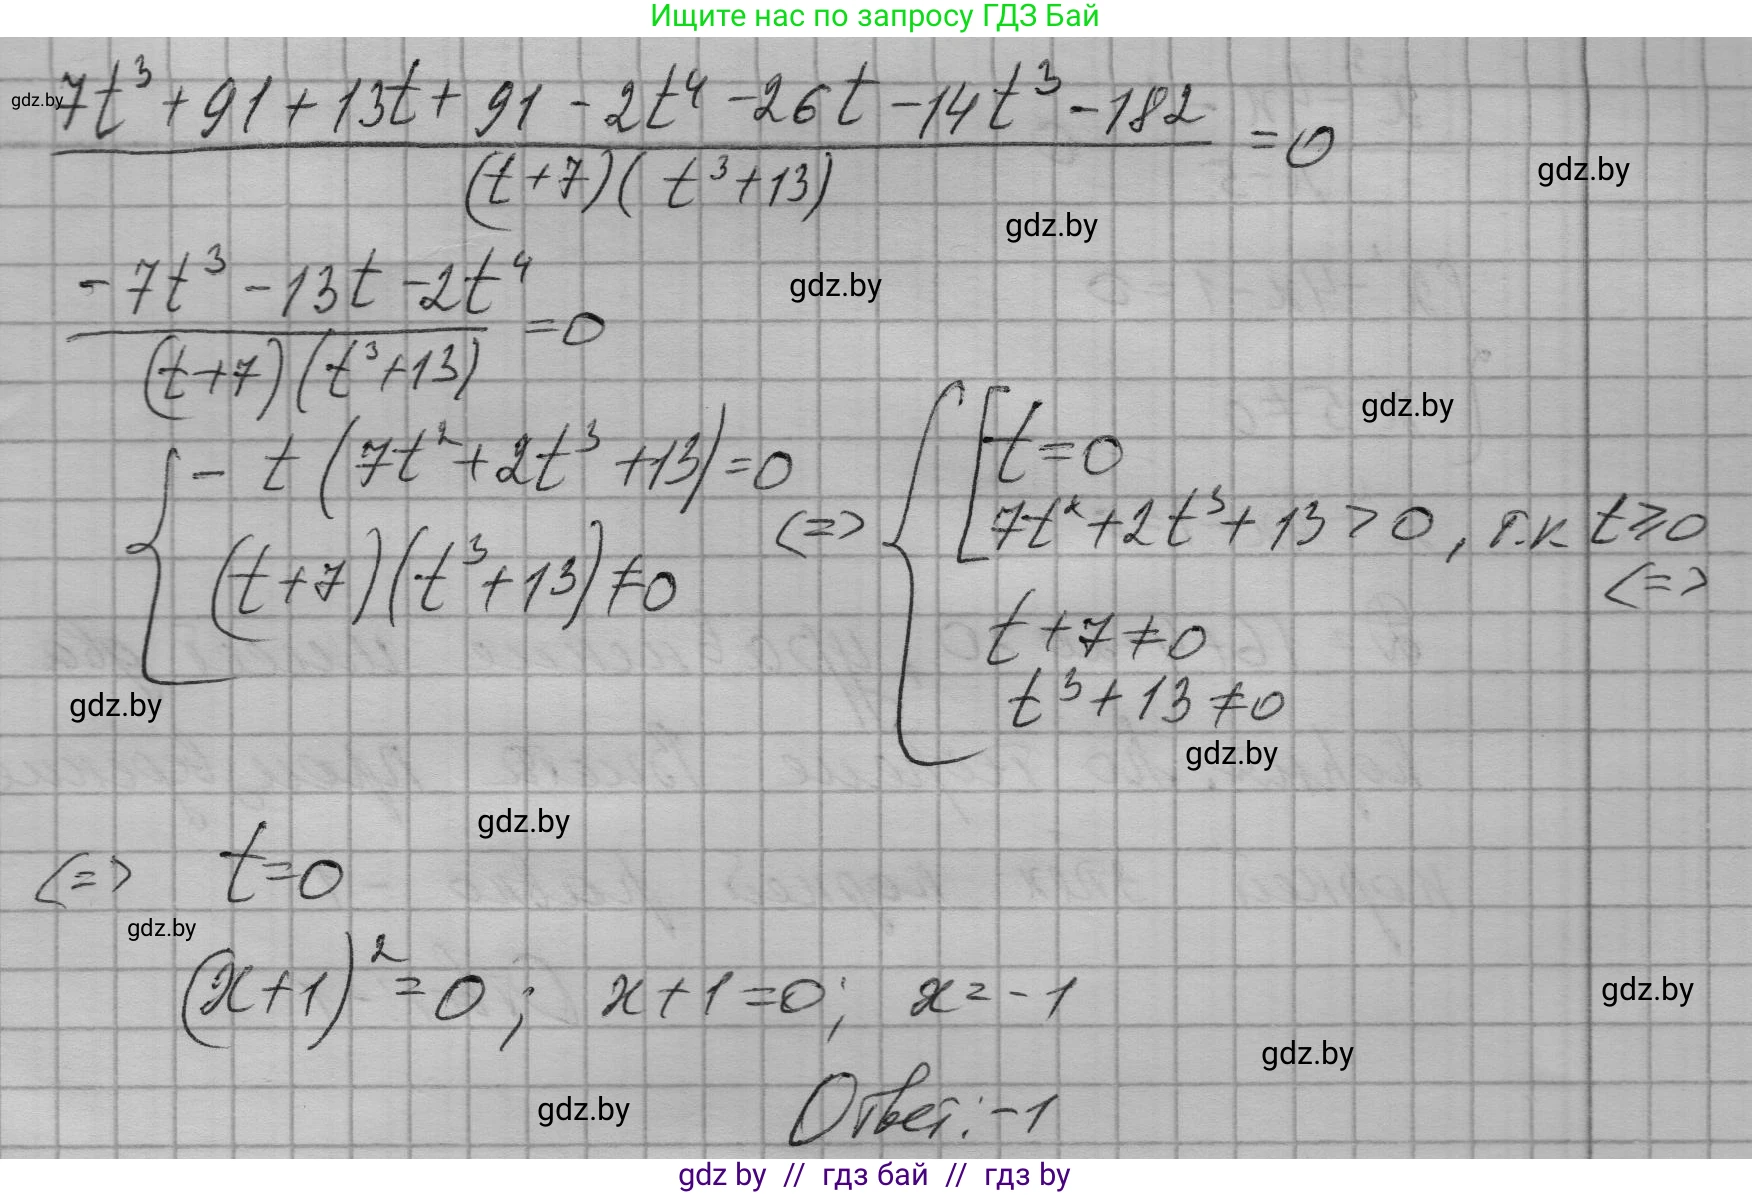 Ищите нас по запросу ГДЗ Бай
7t³ + 91 + 13t + 91 - 2t⁴ - 26t - 14t³ - 182
gdz.by
= 0
(t + 7)( t³ + 13)
gdz.by
gdz.by
- 7t³ - 13t - 2t⁴
gdz.by
= 0
(t + 7)(t³ + 13)
gdz.by
- t (7t² + 2t³ + 13) = 0
(t + 7)(t³ + 13) ≠ 0
<=>
t = 0
7t² + 2t³ + 13 > 0, т.к t ≥ 0
<=>
t + 7 ≠ 0
t³ + 13 ≠ 0
gdz.by
gdz.by
gdz.by
<=> t = 0
gdz.by
(x + 1)² = 0; x + 1 = 0; x = - 1
gdz.by
gdz.by
gdz.by
Ответ: - 1
gdz by // гдз бай // гдз by